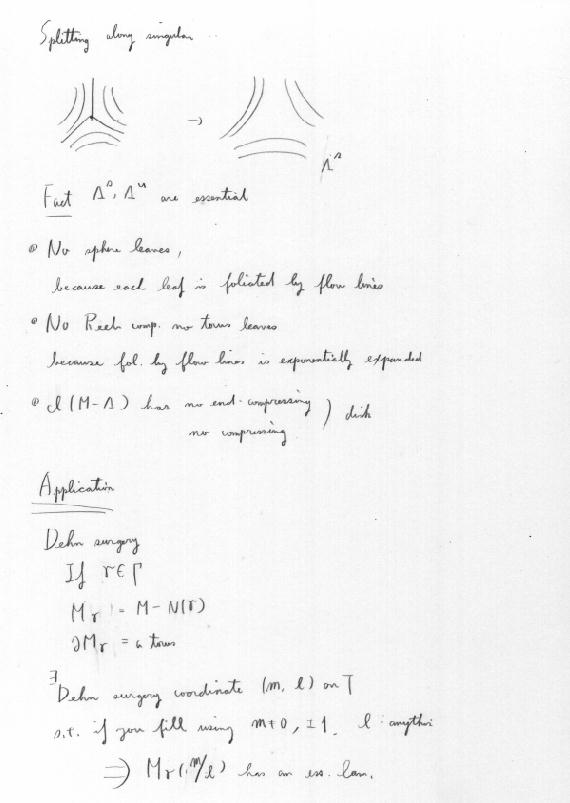 Splitting along singular ..
→
Λˢ
Fact Λˢ, Λᵘ are essential
No sphere leaves,
because each leaf is foliated by flow lines
No Reeb comp. no torus leaves
because fol. by flow lines is exponentially expanded
cl (M-Λ) has no end-compressing ) disk
no compressing
Application
Dehn surgery
If γ∈Γ
Mγ = M - N(γ)
∂Mγ = a torus
∃ Dehn surgery coordinate (m, l) on T
s.t. if you fill using m≠0, ±1. l : anything
⇒ Mγ(m/l) has an ess. lam.